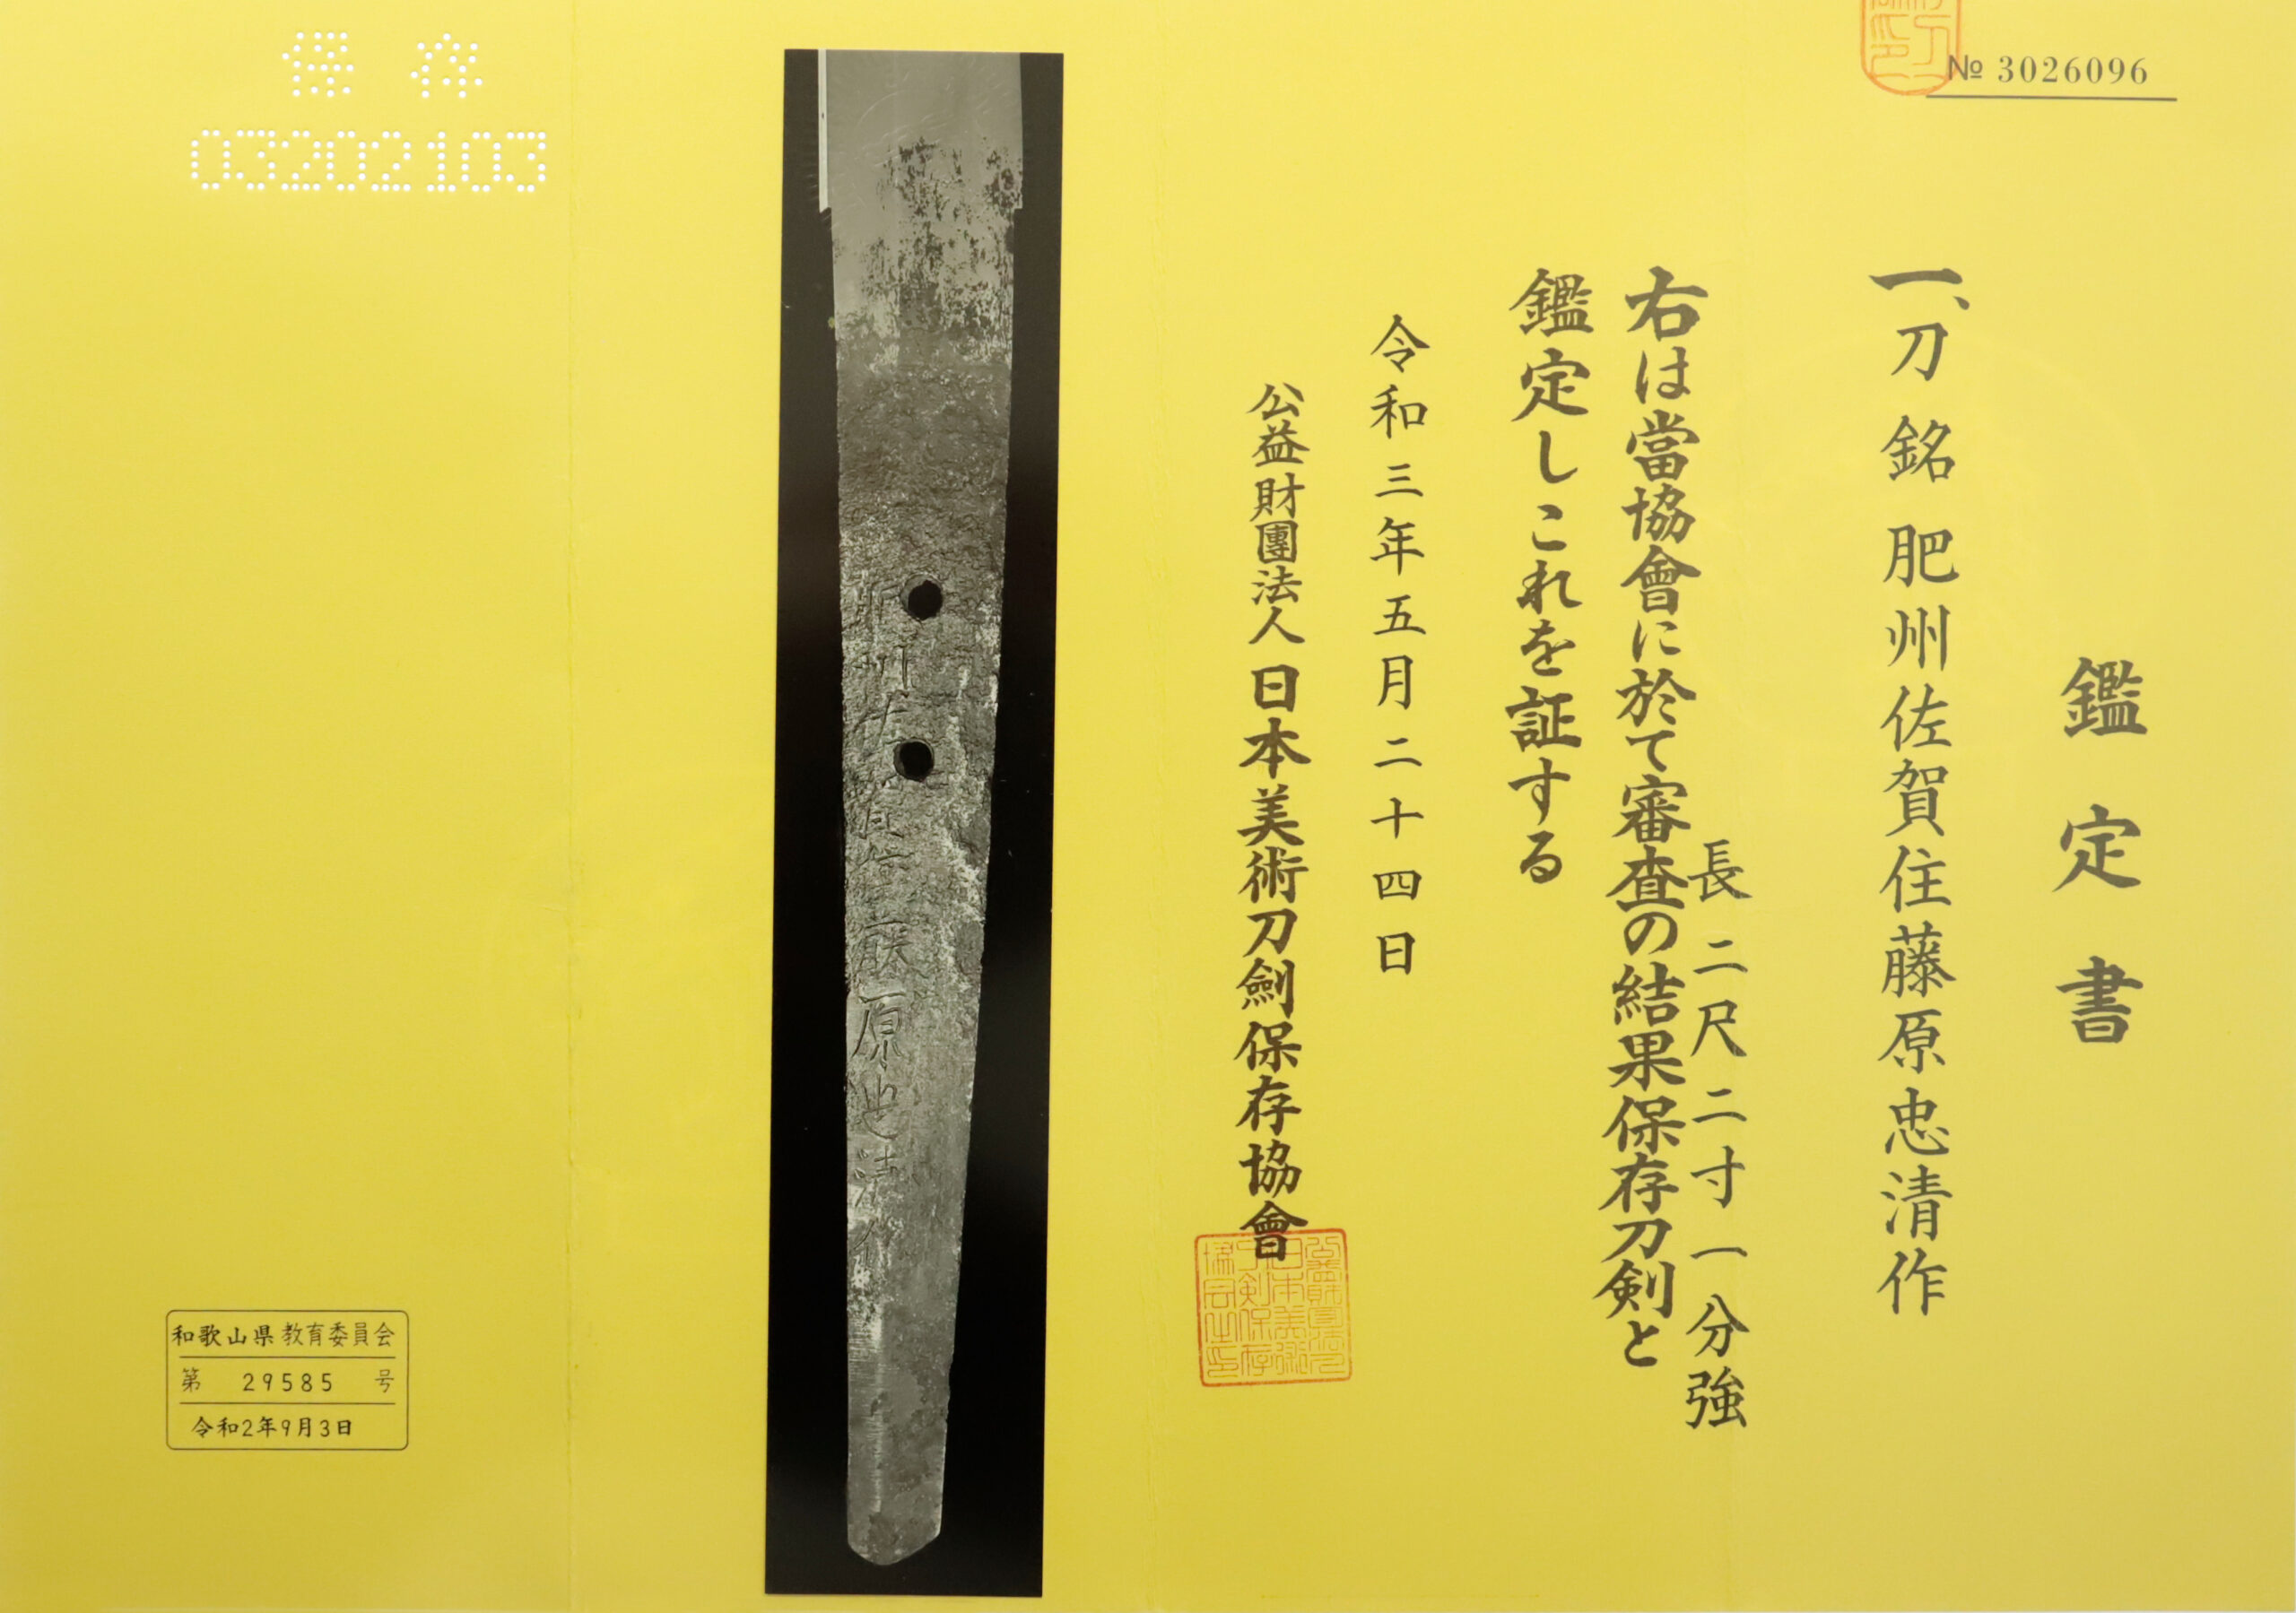 № 3026096
鑑定書
一、刀 銘 肥州佐賀住藤原忠清作
長 二尺二寸一分強
右は當協會に於て審査の結果保存刀剣と
鑑定しこれを証する
令和三年五月二十四日
公益財團法人 日本美術刀劍保存協會
肥州佐賀住藤原忠清作
保存
03202103
和歌山県教育委員会
第 29585 号
令和2年9月3日